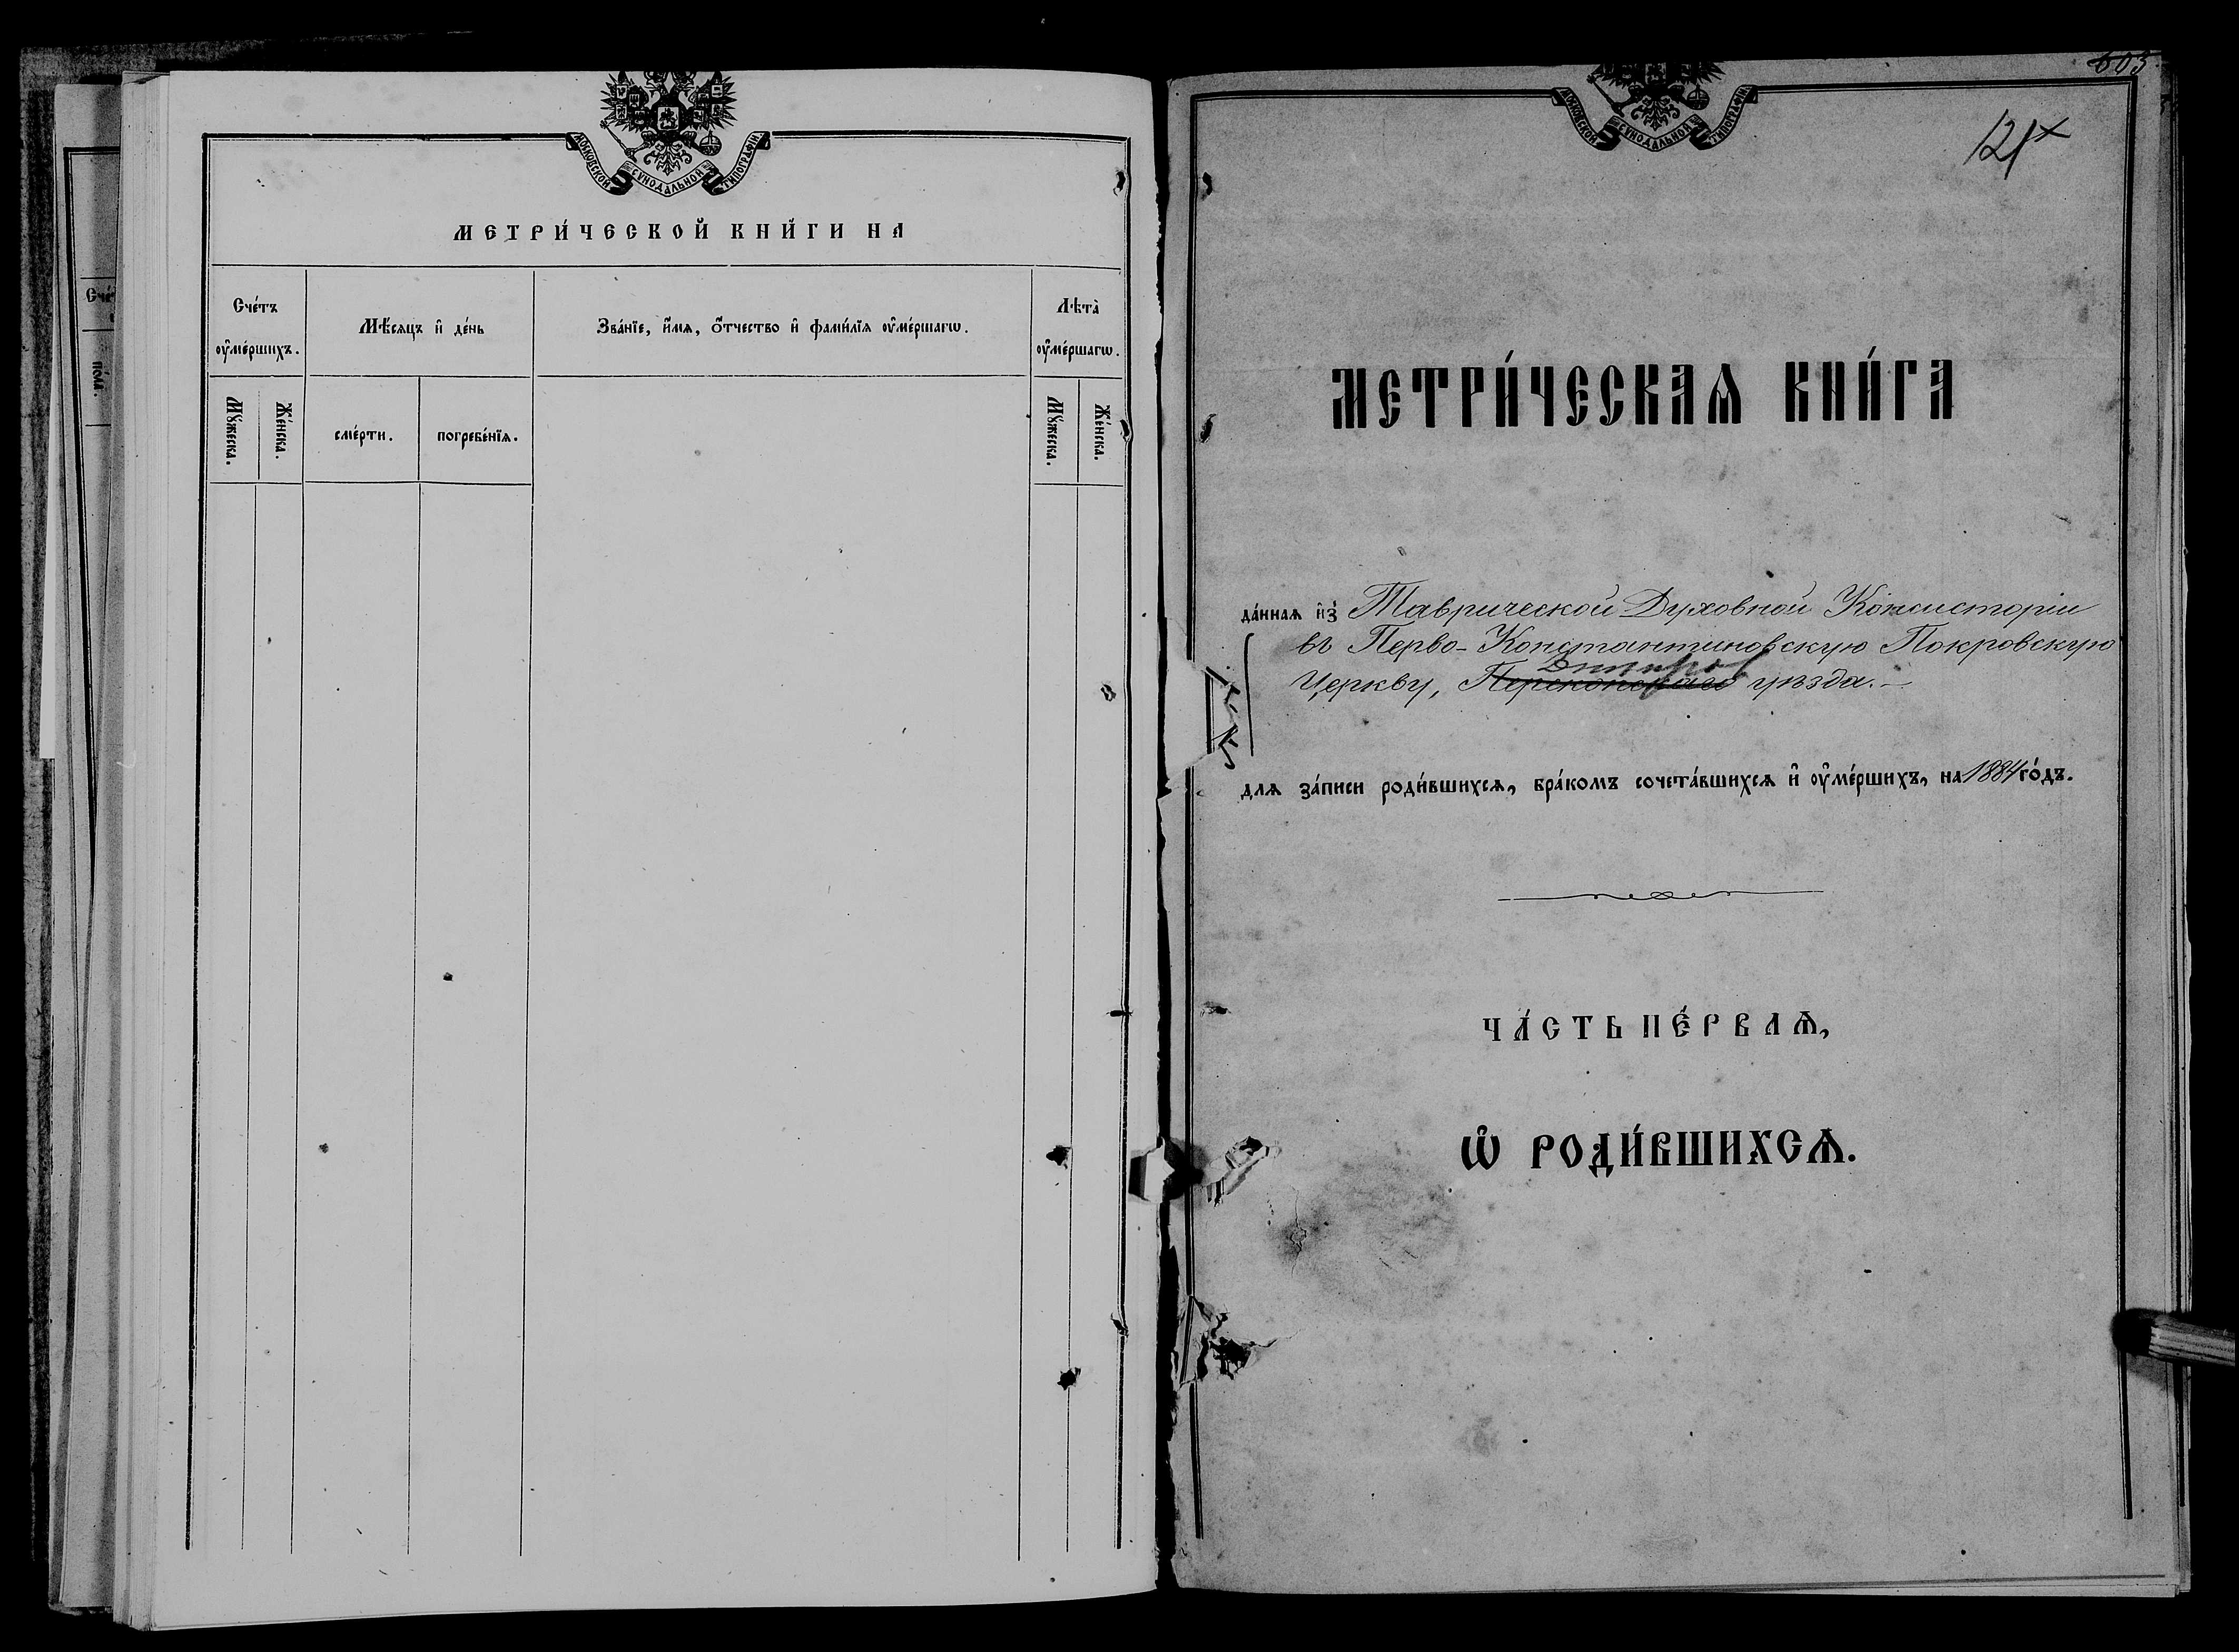 МОСКОВСКОЙ СѴНОДАЛЬНОЙ ТИПОГРАФІИ.
МЕТРИ́ЧЕСКОЙ КНИ́ГИ НА
Сче́тъ оу҆ме́ршихъ.
Мѣ́сяцъ и҆ де́нь
Зва́нїе, и҆́мѧ, ѻ҆́тчество и҆ фами́лїѧ оу҆ме́ршагѡ.
Лѣта̀ оу҆ме́ршагѡ.
Мꙋ́жеска.
Же́нска.
сме́рти.
погребе́нїѧ.
Мꙋ́жеска.
Же́нска.
Сче́
по́ла.
605
МОСКОВСКОЙ СѴНОДАЛЬНОЙ ТИПОГРАФІИ.
121
МЕТРИ́ЧЕСКАѦ КНИ́ГА
да́ннаѧ и҆з̾ Таврической Духовной Консисторіи
въ Перво-Константиновскую Покровскую
Днепров
Церкву, Перекопскаго уѣзда.
длѧ за́писи роди́вшихсѧ, бра́комъ сочета́вшихсѧ и҆ оу҆ме́ршихъ, на 1884 го́дъ.
ЧА́СТЬ ПЕ́РВАѦ,
Ѡ҆ РОДИ́ВШИХСѦ.